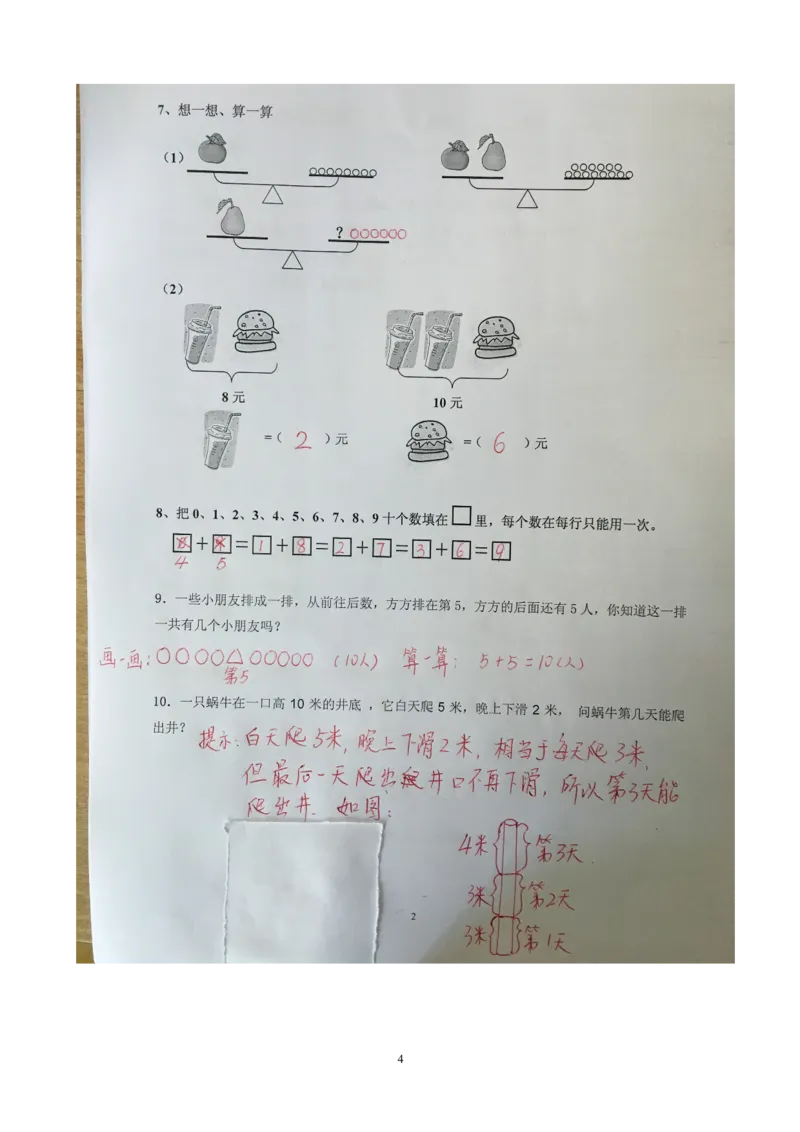 7、想一想、算一算
（1）
? ○○○○○○
（2）
8元
10元
=（ 2 ）元
=（ 6 ）元
8、把 0、1、2、3、4、5、6、7、8、9 十个数填在□里，每个数在每行只能用一次。
+ = 1 + 8 = 2 + 7 = 3 + 6 = 9
4 5
9．一些小朋友排成一排，从前往后数，方方排在第 5，方方的后面还有 5 人，你知道这一排
一共有几个小朋友吗？
画一画：○○○○△○○○○○（10人） 算一算：5+5=10（人）
第5
10．一只蜗牛在一口高 10 米的井底 ，它白天爬 5 米，晚上下滑 2 米， 问蜗牛第几天能爬
出井？
提示：白天爬5米，晚上下滑2米，相当于每天爬3米，
但最后一天爬出井口不再下滑，所以第3天能
爬出井．如图：
4米 第3天．
3米 第2天
3米 第1天
2
4